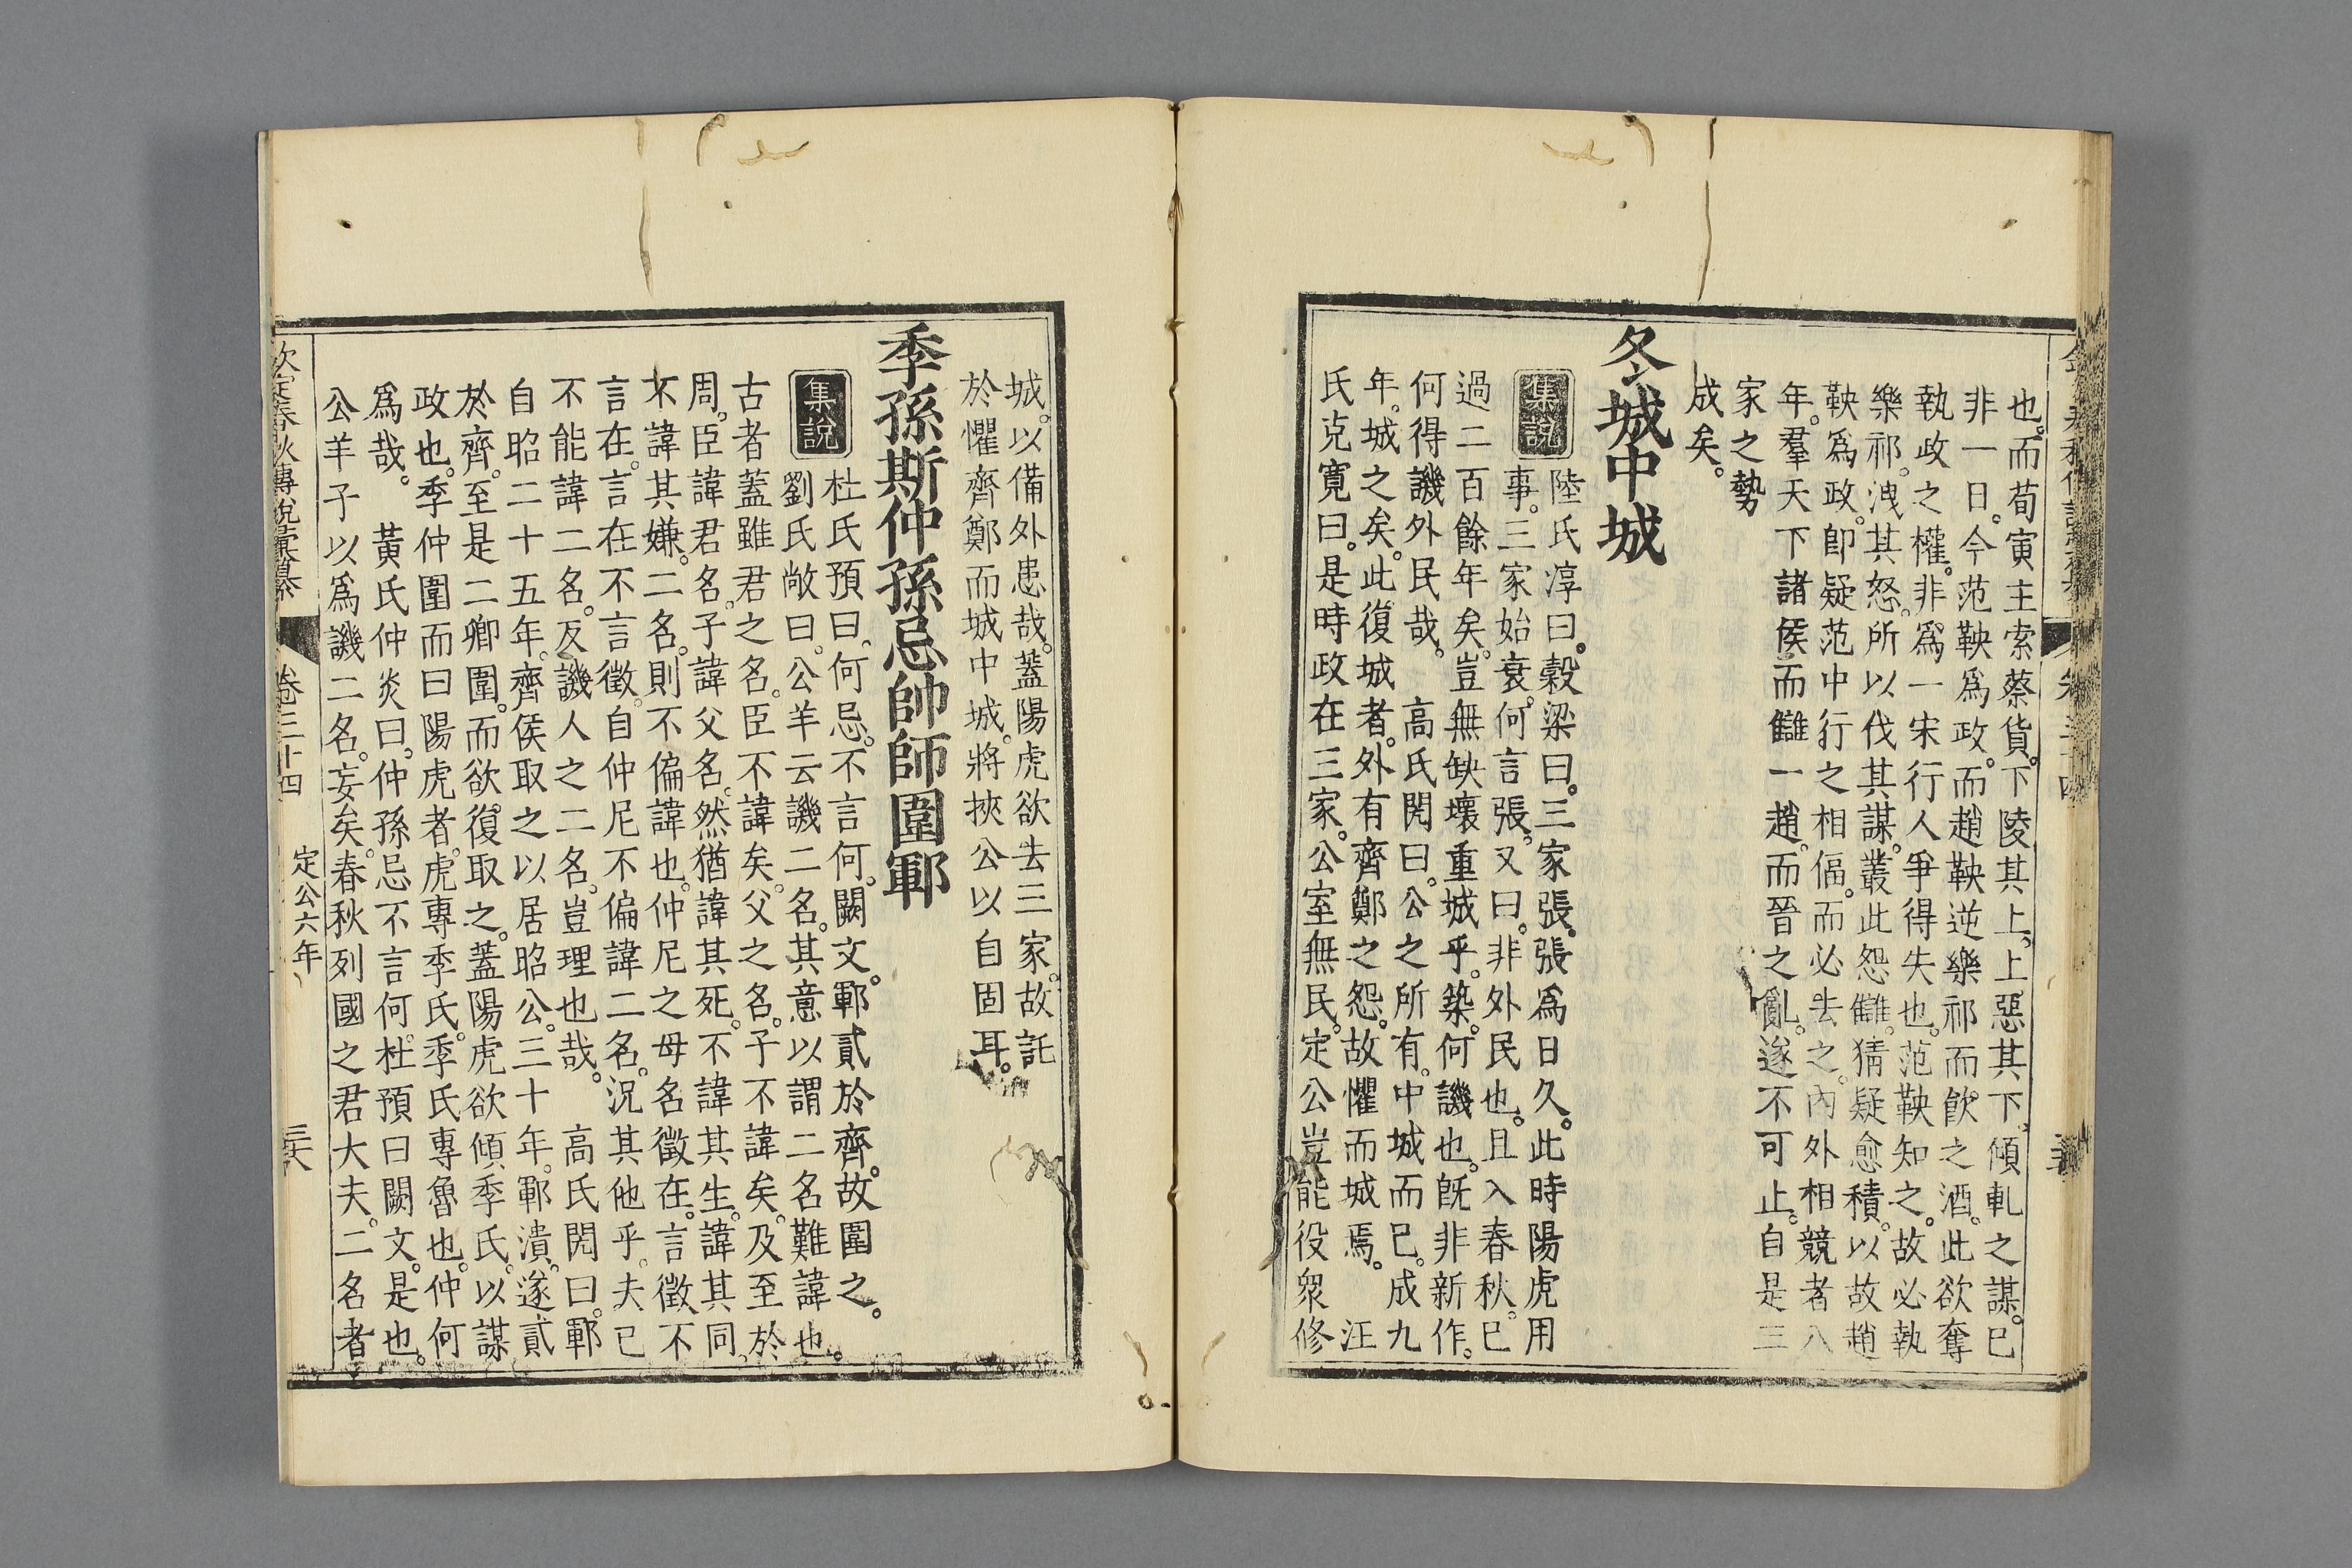 也。而荀寅主索蔡貨。下陵其上。上惡其下。傾軋之謀。已
非一日。今范鞅爲政。而趙鞅逆樂祁而飮之酒。此欲奪
執政之權。非爲一宋行人爭得失也。范鞅知之。故必執
樂祁。洩其怒。所以伐其謀。叢此怨讎。猜疑愈積。以故趙
鞅爲政。卽疑范中行之相偪。而必去之。內外相競者八
年。羣天下諸侯而讎一趙。而晉之亂。遂不可止。自是三
家之勢
成矣。
冬城中城
集說
陸氏淳曰。穀梁曰。三家張。張爲日久。此時陽虎用
事。三家始衰。何言張。又曰。非外民也。且入春秋。已
過二百餘年矣。豈無缺壞重城乎。築。何譏也。旣非新作。
何得譏外民哉。 高氏閌曰。公之所有。中城而已。成九
年。城之矣。此復城者。外有齊鄭之怨。故懼而城焉。 汪
氏克寬曰。是時政在三家。公室無民。定公豈能役衆修
城。以備外患哉。蓋陽虎欲去三家。故託
於懼齊鄭而城中城。將挾公以自固耳。
季孫斯仲孫忌帥師圍鄆
集說
杜氏預曰。何忌。不言何。闕文。鄆貳於齊。故圍之。
劉氏敞曰。公羊云譏二名。其意以謂二名難諱也。
古者蓋雖君之名。臣不諱矣。父之名。子不諱矣。及至於
周。臣諱君名。子諱父名。然猶諱其死。不諱其生。諱其同。
不諱其嫌。二名。則不偏諱也。仲尼之母名徵在。言徵不
言在。言在不言徵。自仲尼不偏諱二名。況其他乎。夫已
不能諱二名。反譏人之二名。豈理也哉。 高氏閌曰。鄆
自昭二十五年。齊侯取之以居昭公。三十年。鄆潰。遂貳
於齊。至是二卿圍。而欲復取之。蓋陽虎欲傾季氏。以謀
政也。季仲圍而曰陽虎者。虎專季氏。季氏專魯也。仲何
爲哉。 黃氏仲炎曰。仲孫忌不言何。杜預曰闕文。是也。
公羊子以爲譏二名。妄矣。春秋列國之君大夫。二名者
欽定春秋傳說彙纂 卷三十四 定公六年 三六